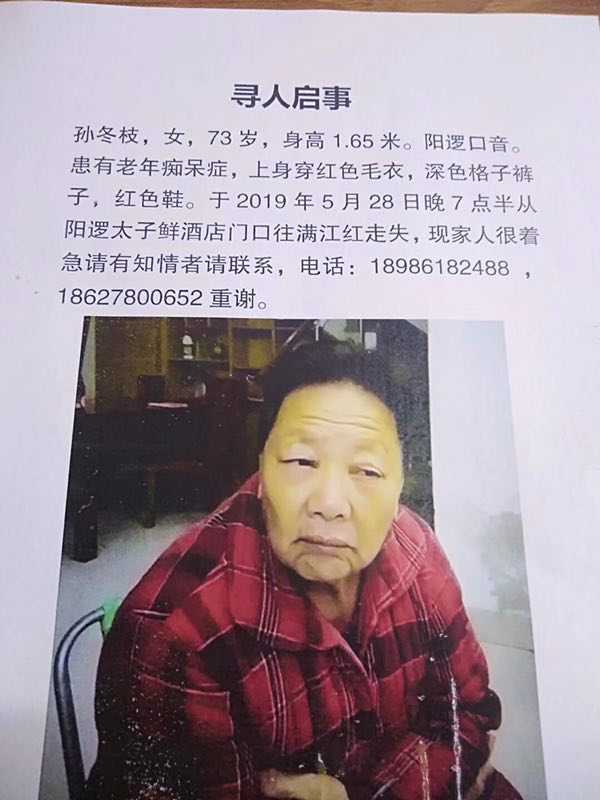 寻人启事
孙冬枝，女，73 岁，身高 1.65 米。阳逻口音。
患有老年痴呆症，上身穿红色毛衣，深色格子裤
子，红色鞋。于 2019 年 5 月 28 日晚 7 点半从
阳逻太子鲜酒店门口往满江红走失，现家人很着
急请有知情者请联系，电话：18986182488 ，
18627800652 重谢。